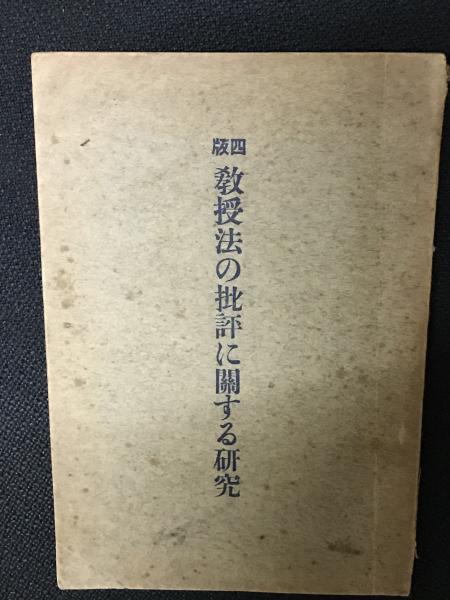 四版
教授法の批評に關する研究